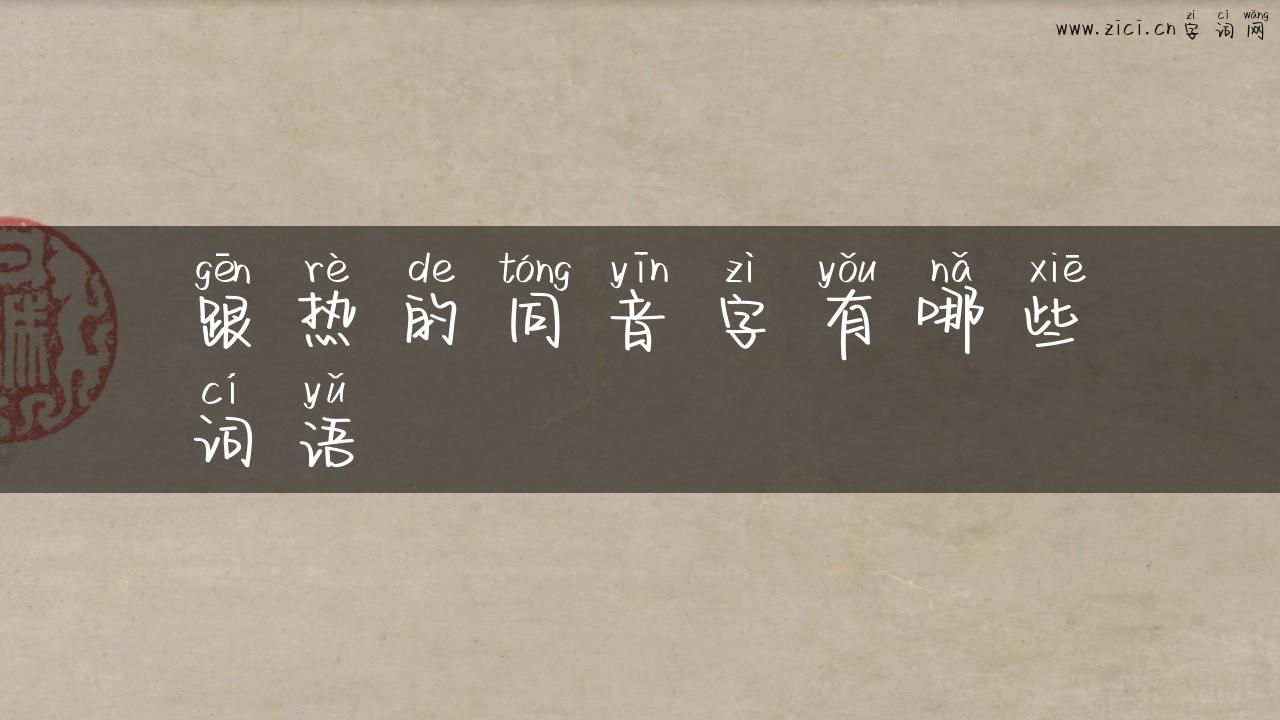 zì cí wǎng
www.zici.cn 字词网
gēn rè de tóng yīn zì yǒu nǎ xiē
跟热的同音字有哪些
cí yǔ
词语